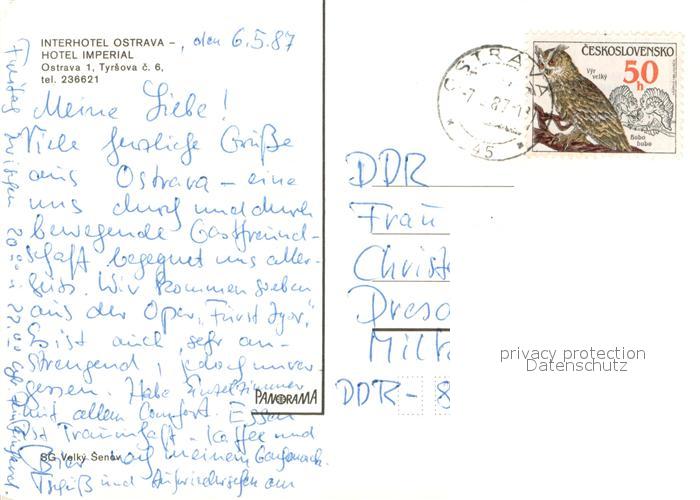 INTERHOTEL OSTRAVA –
HOTEL IMPERIAL
Ostrava 1, Tyršova č. 6,
tel. 236621
, den 6.5.87
Meine Liebe!
Viele herzliche Grüße
aus Ostrava – eine
uns durch und durch
bewegende Gastfreund-
schaft begegnet uns aller-
seits. Wir kommen soeben
aus der Oper „Fürst Igor".
Es ist auch sehr an-
strengend, jedoch unver-
gessen. Habe Einzelzimmer
mit allem Comfort. Essen
ist Traumhaft - Kaffee und
auf meinem
Tschüß und Aufwiedersehen am
Freitag zwischen 20.00 u. 22.00
SG Velký Šenov
PANORAMA
ČESKOSLOVENSKO
50 h
Výr
velký
Bubo
bubo
OSTRAVA
45
DDR
Frau
Christ
Dresd
DDR - 8
privacy protection
Datenschutz